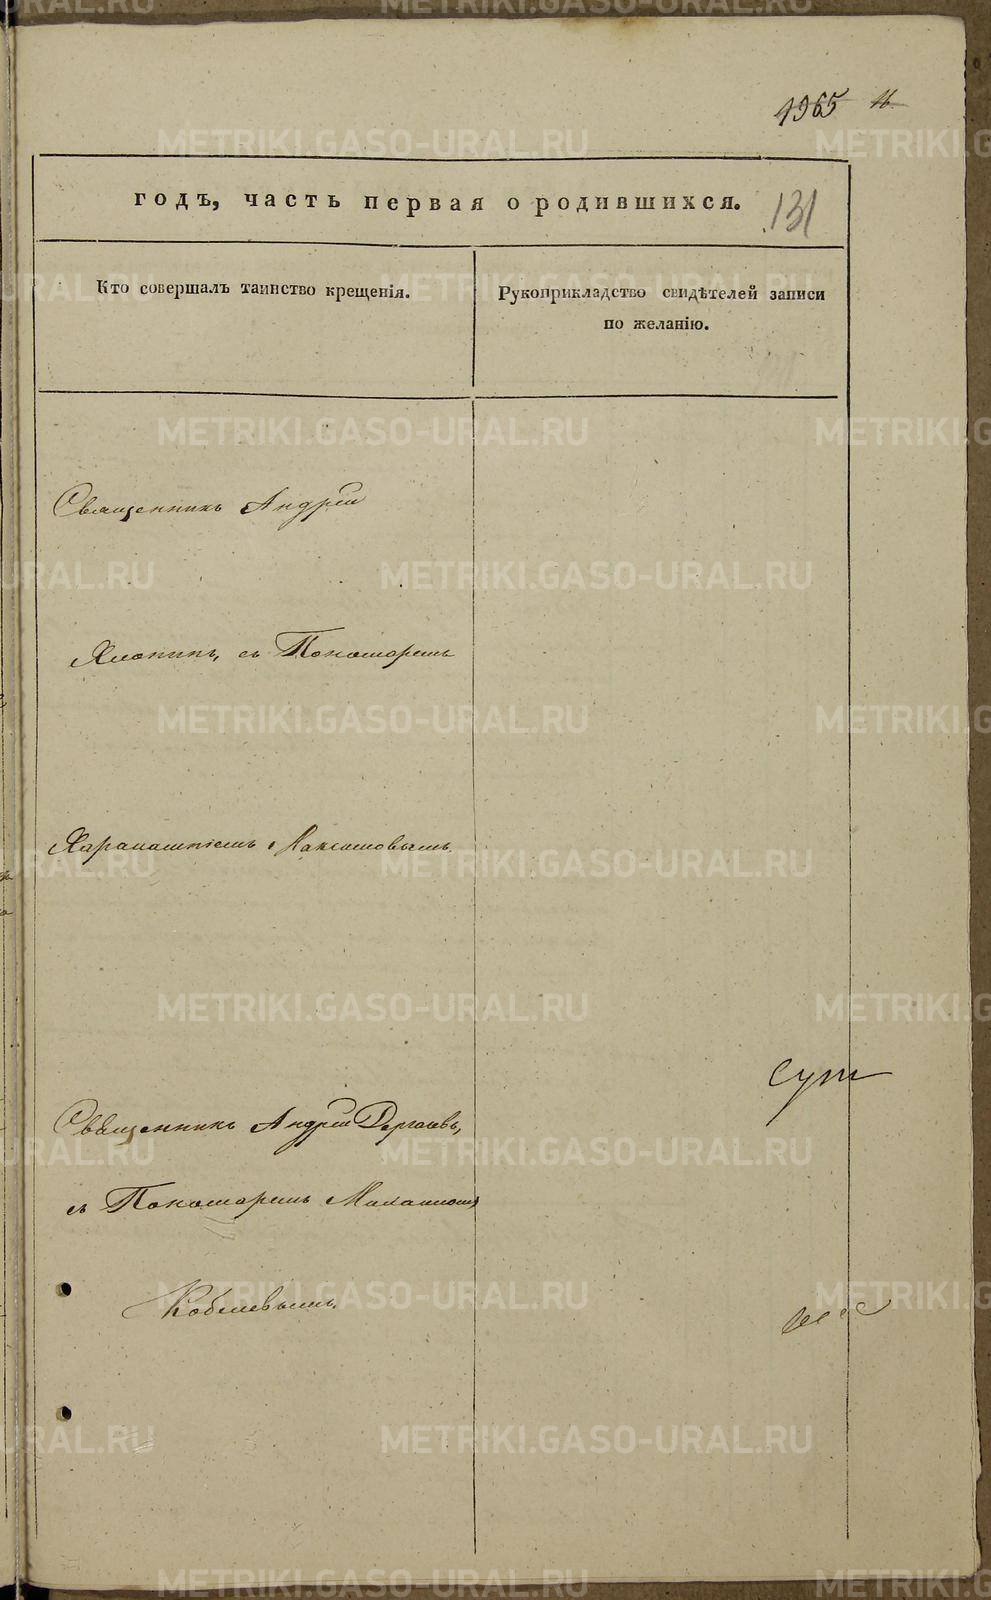 1965 16
годъ, часть первая о родившихся. 131
Кто совершалъ таинство крещенія.
Рукоприкладство свидѣтелей записи
по желанію.
Священникъ Андрей
Хлопинъ, съ Пономаремъ
Харалампіемъ Максимовымъ.
Священникъ Андрей Дергаевъ,
съ Пономаремъ
Кобелевымъ.
METRIKI.GASO-URAL.RU